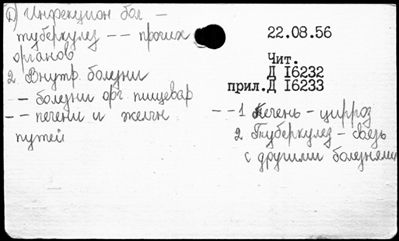 1) Инфекцион бол –
туберкулез -- прочих
органов
2. Внутр. болезни
-- болезни орг. пищевар
-- печени и желчн
путей
22.08.56
Чит.
Д I6232
прил.Д I6233
-- 1 Печень - цирроз
2 Туберкулез - связь
с другими болезнями